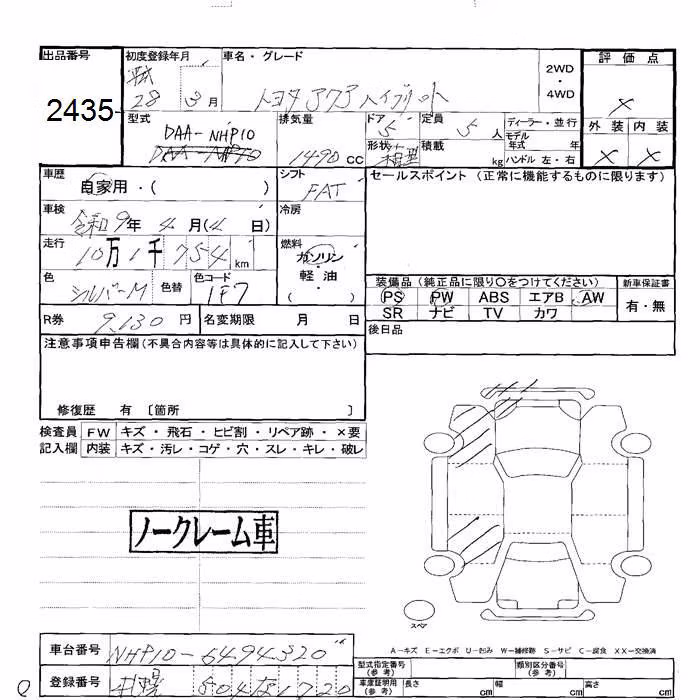 出品番号
2435
初度登録年月
平成
28 3月
車名・グレード
トヨタ アクア ハイブリット
2WD
・
4WD
評価点
×
外装 内装
× ×
型式
DAA-NHP10
排気量
1490 CC
ドア
5
形状
箱型
定員
5 人
積載
kg
ディーラー・並行
モデル
年式 年
ハンドル 左・右
車歴
自家用・( )
シフト
FAT
セールスポイント (正常に機能するものに限ります)
車検
令和9年 4月( 日)
冷房
走行
10万1千754 km
燃料
ガソリン
・
軽油
( )
色
シルバーM
色替
色コード
1F7
装備品 (純正品に限り〇をつけてください)
PS PW ABS エアB AW
SR ナビ TV カワ
新車保証書
有・無
R券 9,130 円
名変期限 月 日
後日品
注意事項申告欄 (不具合内容等は具体的に記入して下さい)
修復歴 有 〔箇所 〕
検査員 FW キズ・飛石・ヒビ割・リペア跡・×要
記入欄 内装 キズ・汚レ・コゲ・穴・スレ・キレ・破レ
ノークレーム車
スペア
A－キズ E－エクボ U－凹み W－補修跡 S－サビ C－腐食 XX－交換済
車台番号 NHP10-6494320
登録番号 札幌 504 1720
型式指定番号
(参考)
類別区分番号
(参考)
車庫証明用
(参考)
長さ cm 幅 cm 高さ cm